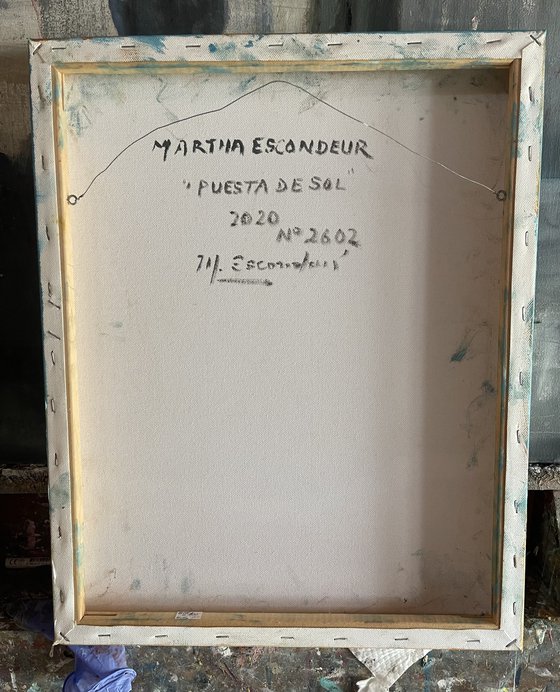 MARTHA ESCONDEUR
"PUESTA DE SOL"
2020
Nº 2602
M. Escondeur